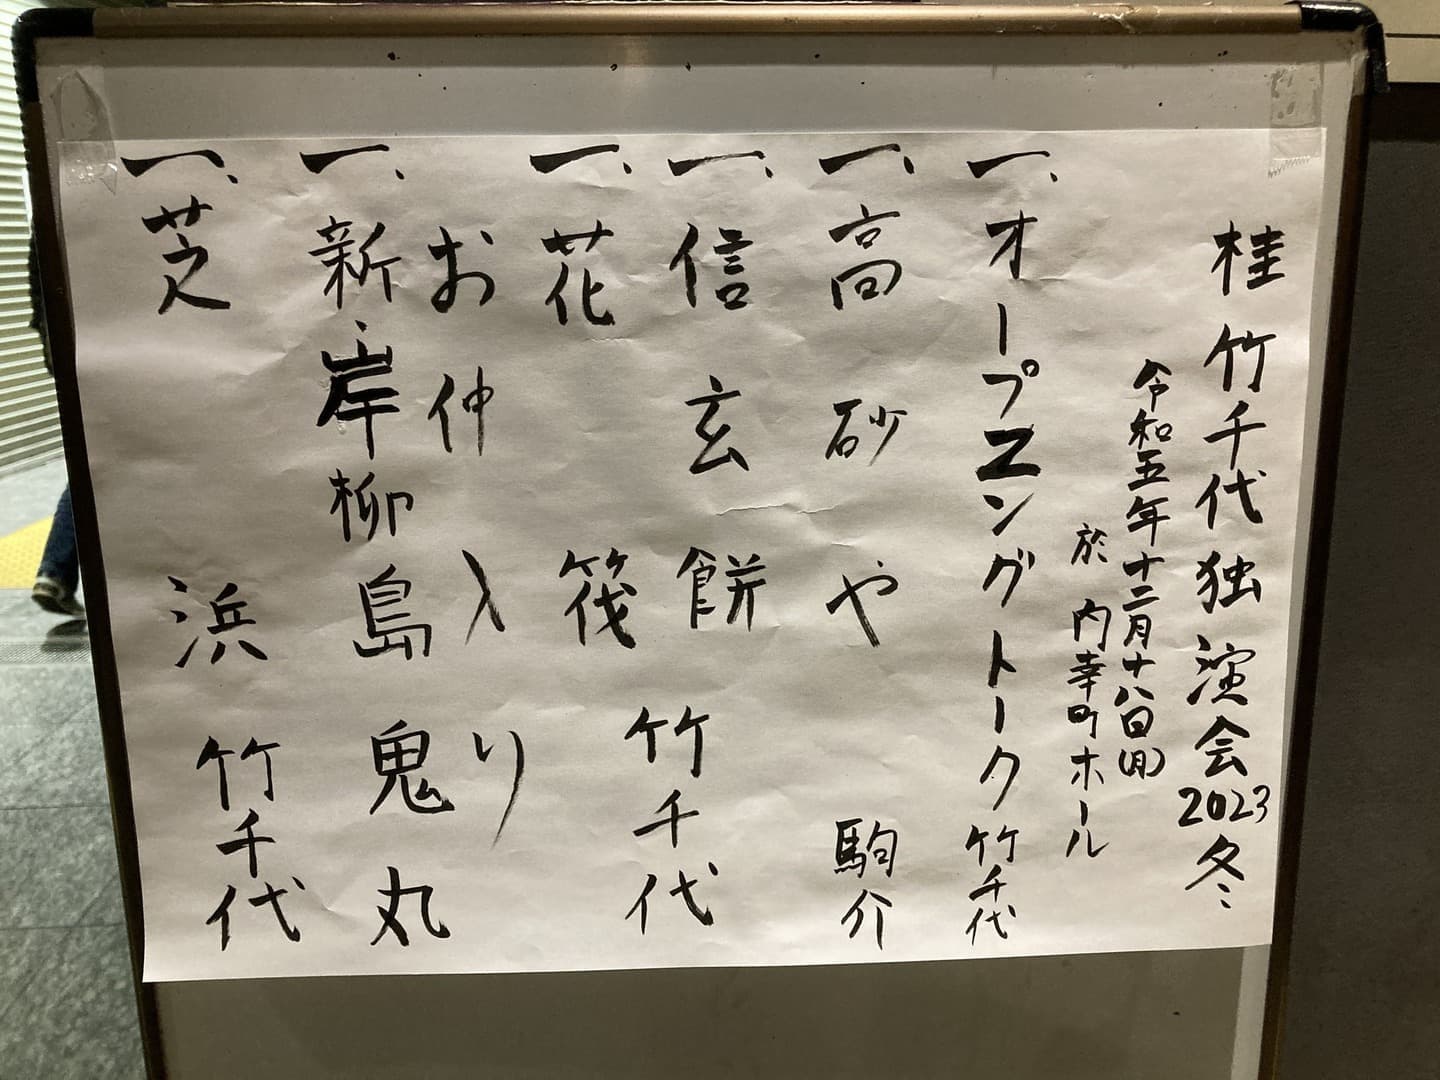 桂竹千代独演会2023冬
令和五年十二月十八日(月)
於 内幸町ホール
一、オープニングトーク 竹千代
一、高砂や 駒介
一、信玄餅
一、花筏 竹千代
お仲入り
一、新岸柳島 鬼丸
一、芝浜 竹千代